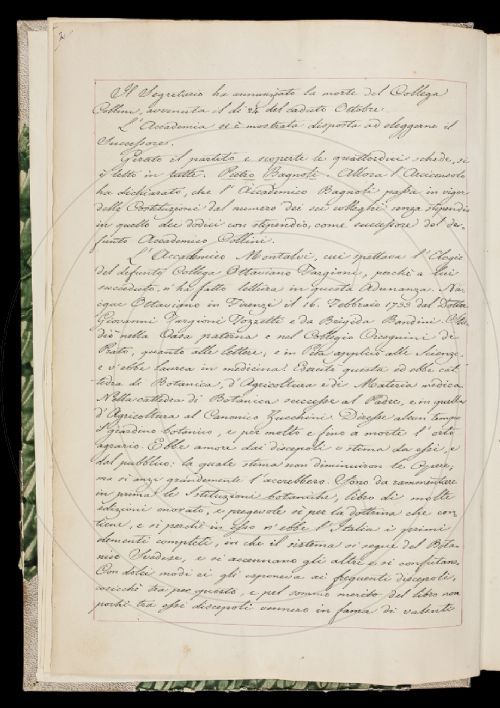 2.
Il Segretario ha annunziato la morte del Collega
Collini, avvenuta il dì 24 del caduto Ottobre.
L'Accademia si è mostrata disposta ad eleggerne il
Successore.
Girato il partito e scoperte le quattordici schede, si
è letto in tutte: Pietro Bagnoli. Allora l'Arciconsolo
ha dichiarato, che l'Accademico Bagnoli passa in vigor
delle Costituzioni dal numero dei sei colleghi senza stipendio
in quello dei dodici con stipendio, come successore del de-
funto Accademico Collini.
L'Accademico Montalvi, cui spettava l'Elogio
del defunto Collega Ottaviano Targioni, perchè a lui
succeduto, n'ha fatto lettura in questa Adunanza. Nac-
que Ottaviano in Firenze il 16. Febbraio 1755 dal Dottor
Giovanni Targioni Tozzetti e da Brigida Bandini. Stu-
diò nella Casa paterna e nel Collegio Cicognini di
Prato, quanto alle lettere, e in Pisa applicò alle Scienze,
e v'ebbe laurea in medicina. Esercitò questa ed ebbe cat-
tedra di Botanica, d'Agricoltura e di Materia medica.
Nella cattedra di Botanica successe al Padre, e in quella
d'Agricoltura al Canonico Zucchini. Diresse alcun tempo
il giardino botanico, e per molto e fino a morte l'orto
agrario. Ebbe amore dai discepoli e stima da essi e
dal pubblico: la quale stima non diminuiron le Opere,
ma sì anzi grandemente l'accrebbero. Sono da rammentare
in prima le Istituzioni botaniche, libro di molte
edizioni onorato, e pregevole sì per la dottrina che con
tiene, e sì perchè in esso n'ebbe l'Italia i primi
elementi completi, in che il sistema si segue del Bota-
nico Svedese, e si accennano gli altri e si confutano.
Con dolci modi ei gli esponeva ai frequenti discepoli,
cosicchè tra per questo, e pel sommo merito del libro non
pochi tra essi discepoli vennero in fama di valenti